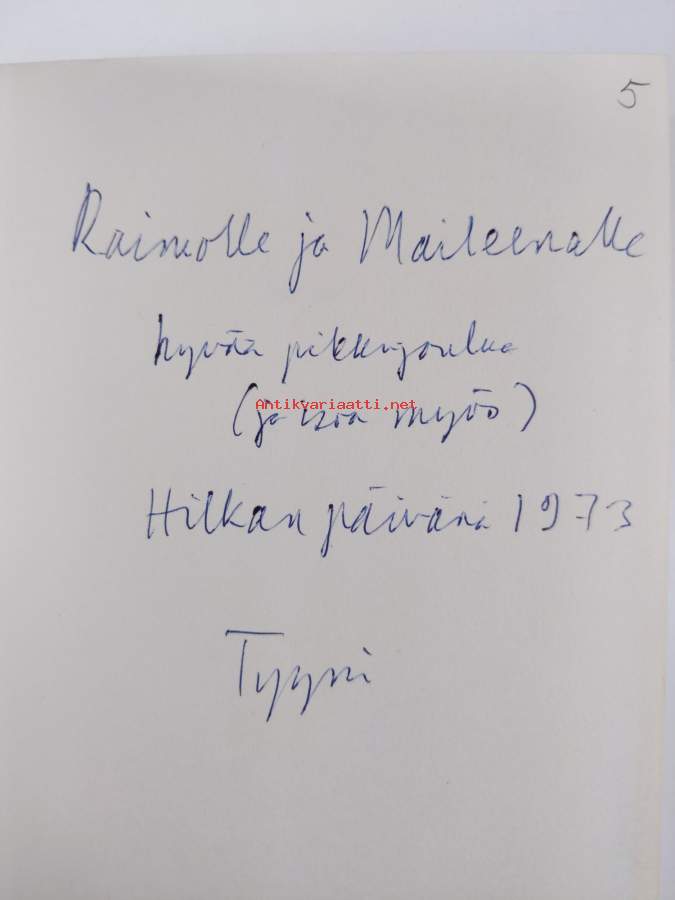 5
Raimolle ja Maileenalle
hyvää pikkujoulua
Antikvariaatti.net
(ja isoa myös)
Hilkan päivänä 1973
Tyyni